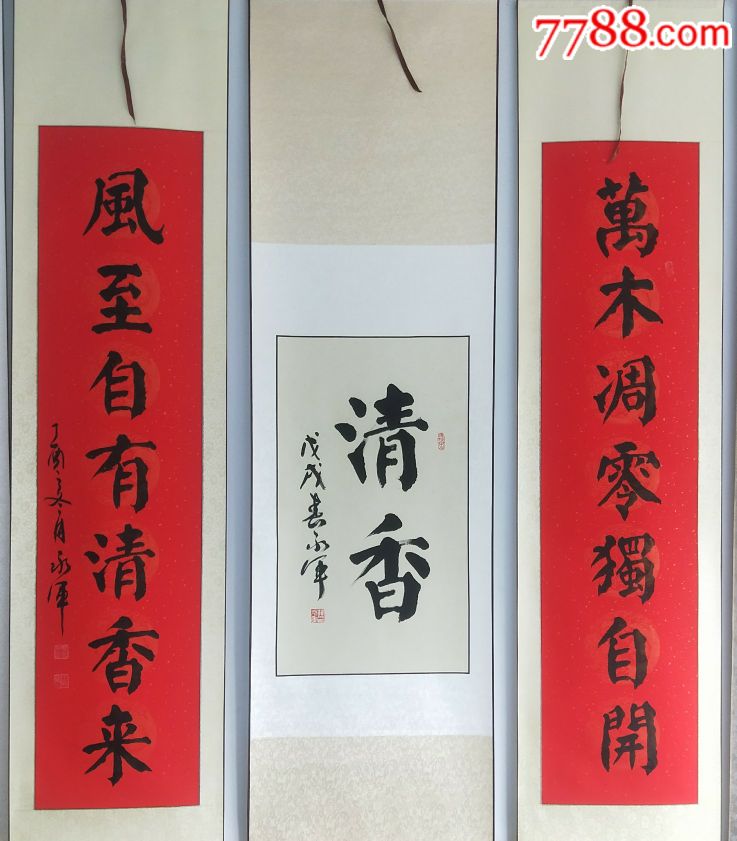 7788.com
萬木凋零獨自開
清香
戊戌春永軍
風至自有清香来
丁酉之冬月永軍